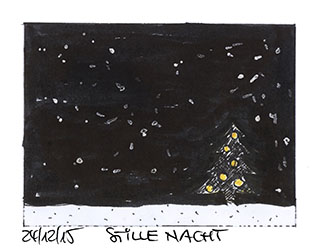 24/12/15 STILLE NACHT